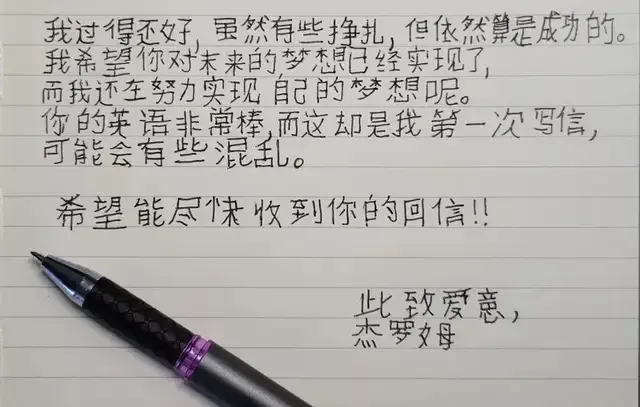 我过得还好，虽然有些挣扎，但依然算是成功的。
我希望你对未来的梦想已经实现了，
而我还在努力实现自己的梦想呢。
你的英语非常棒，而这却是我第一次写信，
可能会有些混乱。
希望能尽快收到你的回信!!
此致爱意，
杰罗姆